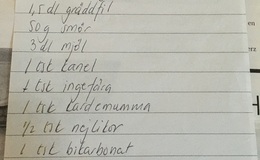 1,5 dl gräddfil
50 g smör
3 dl mjöl
1 tsk kanel
1 tsk ingefära
1 tsk kardemumma
1/2 tsk nejlikor
1 tsk bikarbonat